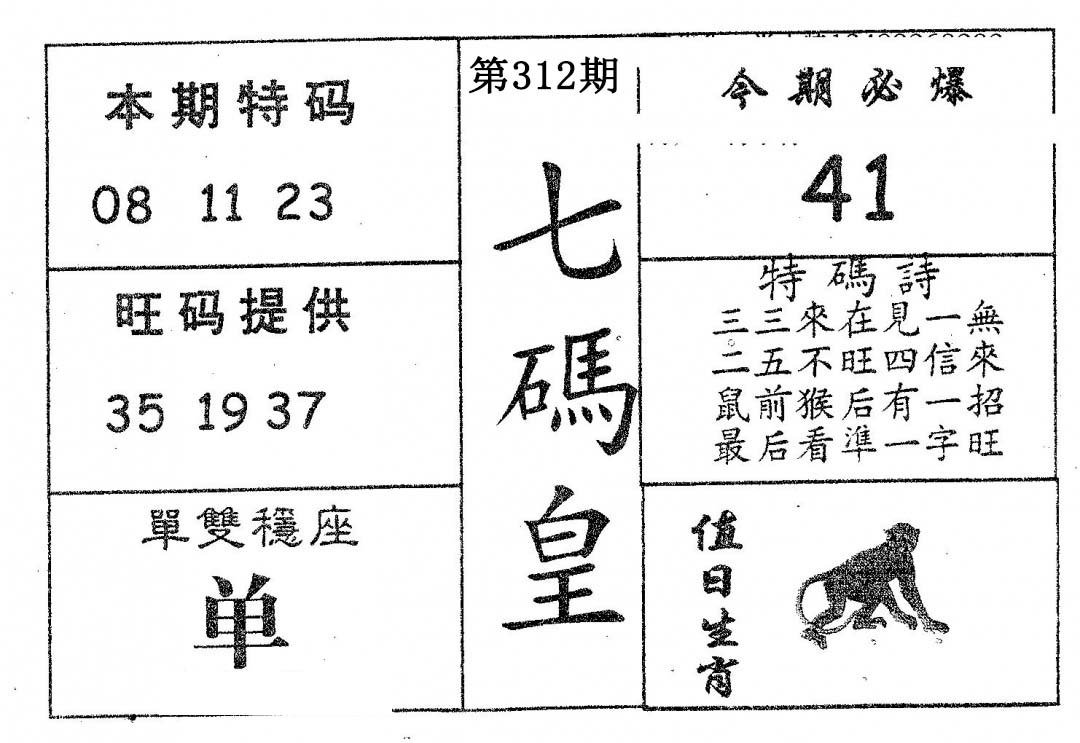 本期特码
08 11 23
旺码提供
35 19 37
單雙穩座
单
第312期
七碼皇
今期必爆
41
特碼詩
三三來在見一無
二五不旺四信來
鼠前猴后有一招
最后看準一字旺
值日生肖